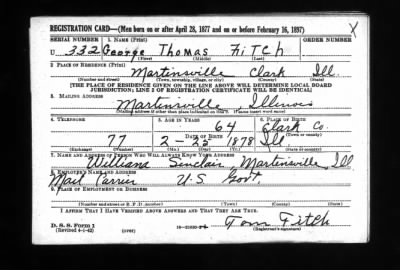 REGISTRATION CARD—(Men born on or after April 28, 1877 and on or before February 16, 1897)
SERIAL NUMBER 1. NAME (Print) ORDER NUMBER
U 332 George Thomas Fitch
(First) (Middle) (Last)
2. PLACE OF RESIDENCE (Print)
Martinsville Clark Ill.
(Number and street) (Town, township, village, or city) (County) (State)
[THE PLACE OF RESIDENCE GIVEN ON THE LINE ABOVE WILL DETERMINE LOCAL BOARD
JURISDICTION; LINE 2 OF REGISTRATION CERTIFICATE WILL BE IDENTICAL]
3. MAILING ADDRESS
Martinsville, Illinois
[Mailing address if other than place indicated on line 2. If same insert word same]
4. TELEPHONE 5. AGE IN YEARS 6. PLACE OF BIRTH
64 Clark Co.
DATE OF BIRTH (Town or county)
77 2-25 1878 Ill.
(Exchange) (Number) (Mo.) (Day) (Yr.) (State or country)
7. NAME AND ADDRESS OF PERSON WHO WILL ALWAYS KNOW YOUR ADDRESS
Sinclair, Martinsville Ill
8. EMPLOYER'S NAME AND ADDRESS
Mail Carrier U.S. Govt.
9. PLACE OF EMPLOYMENT OR BUSINESS
(Number and street or R. F. D. number) (Town) (County) (State)
I AFFIRM THAT I HAVE VERIFIED ABOVE ANSWERS AND THAT THEY ARE TRUE.
D. S. S. Form 1
(Revised 4-1-42) (over) Tom Fitch
(Registrant's signature)